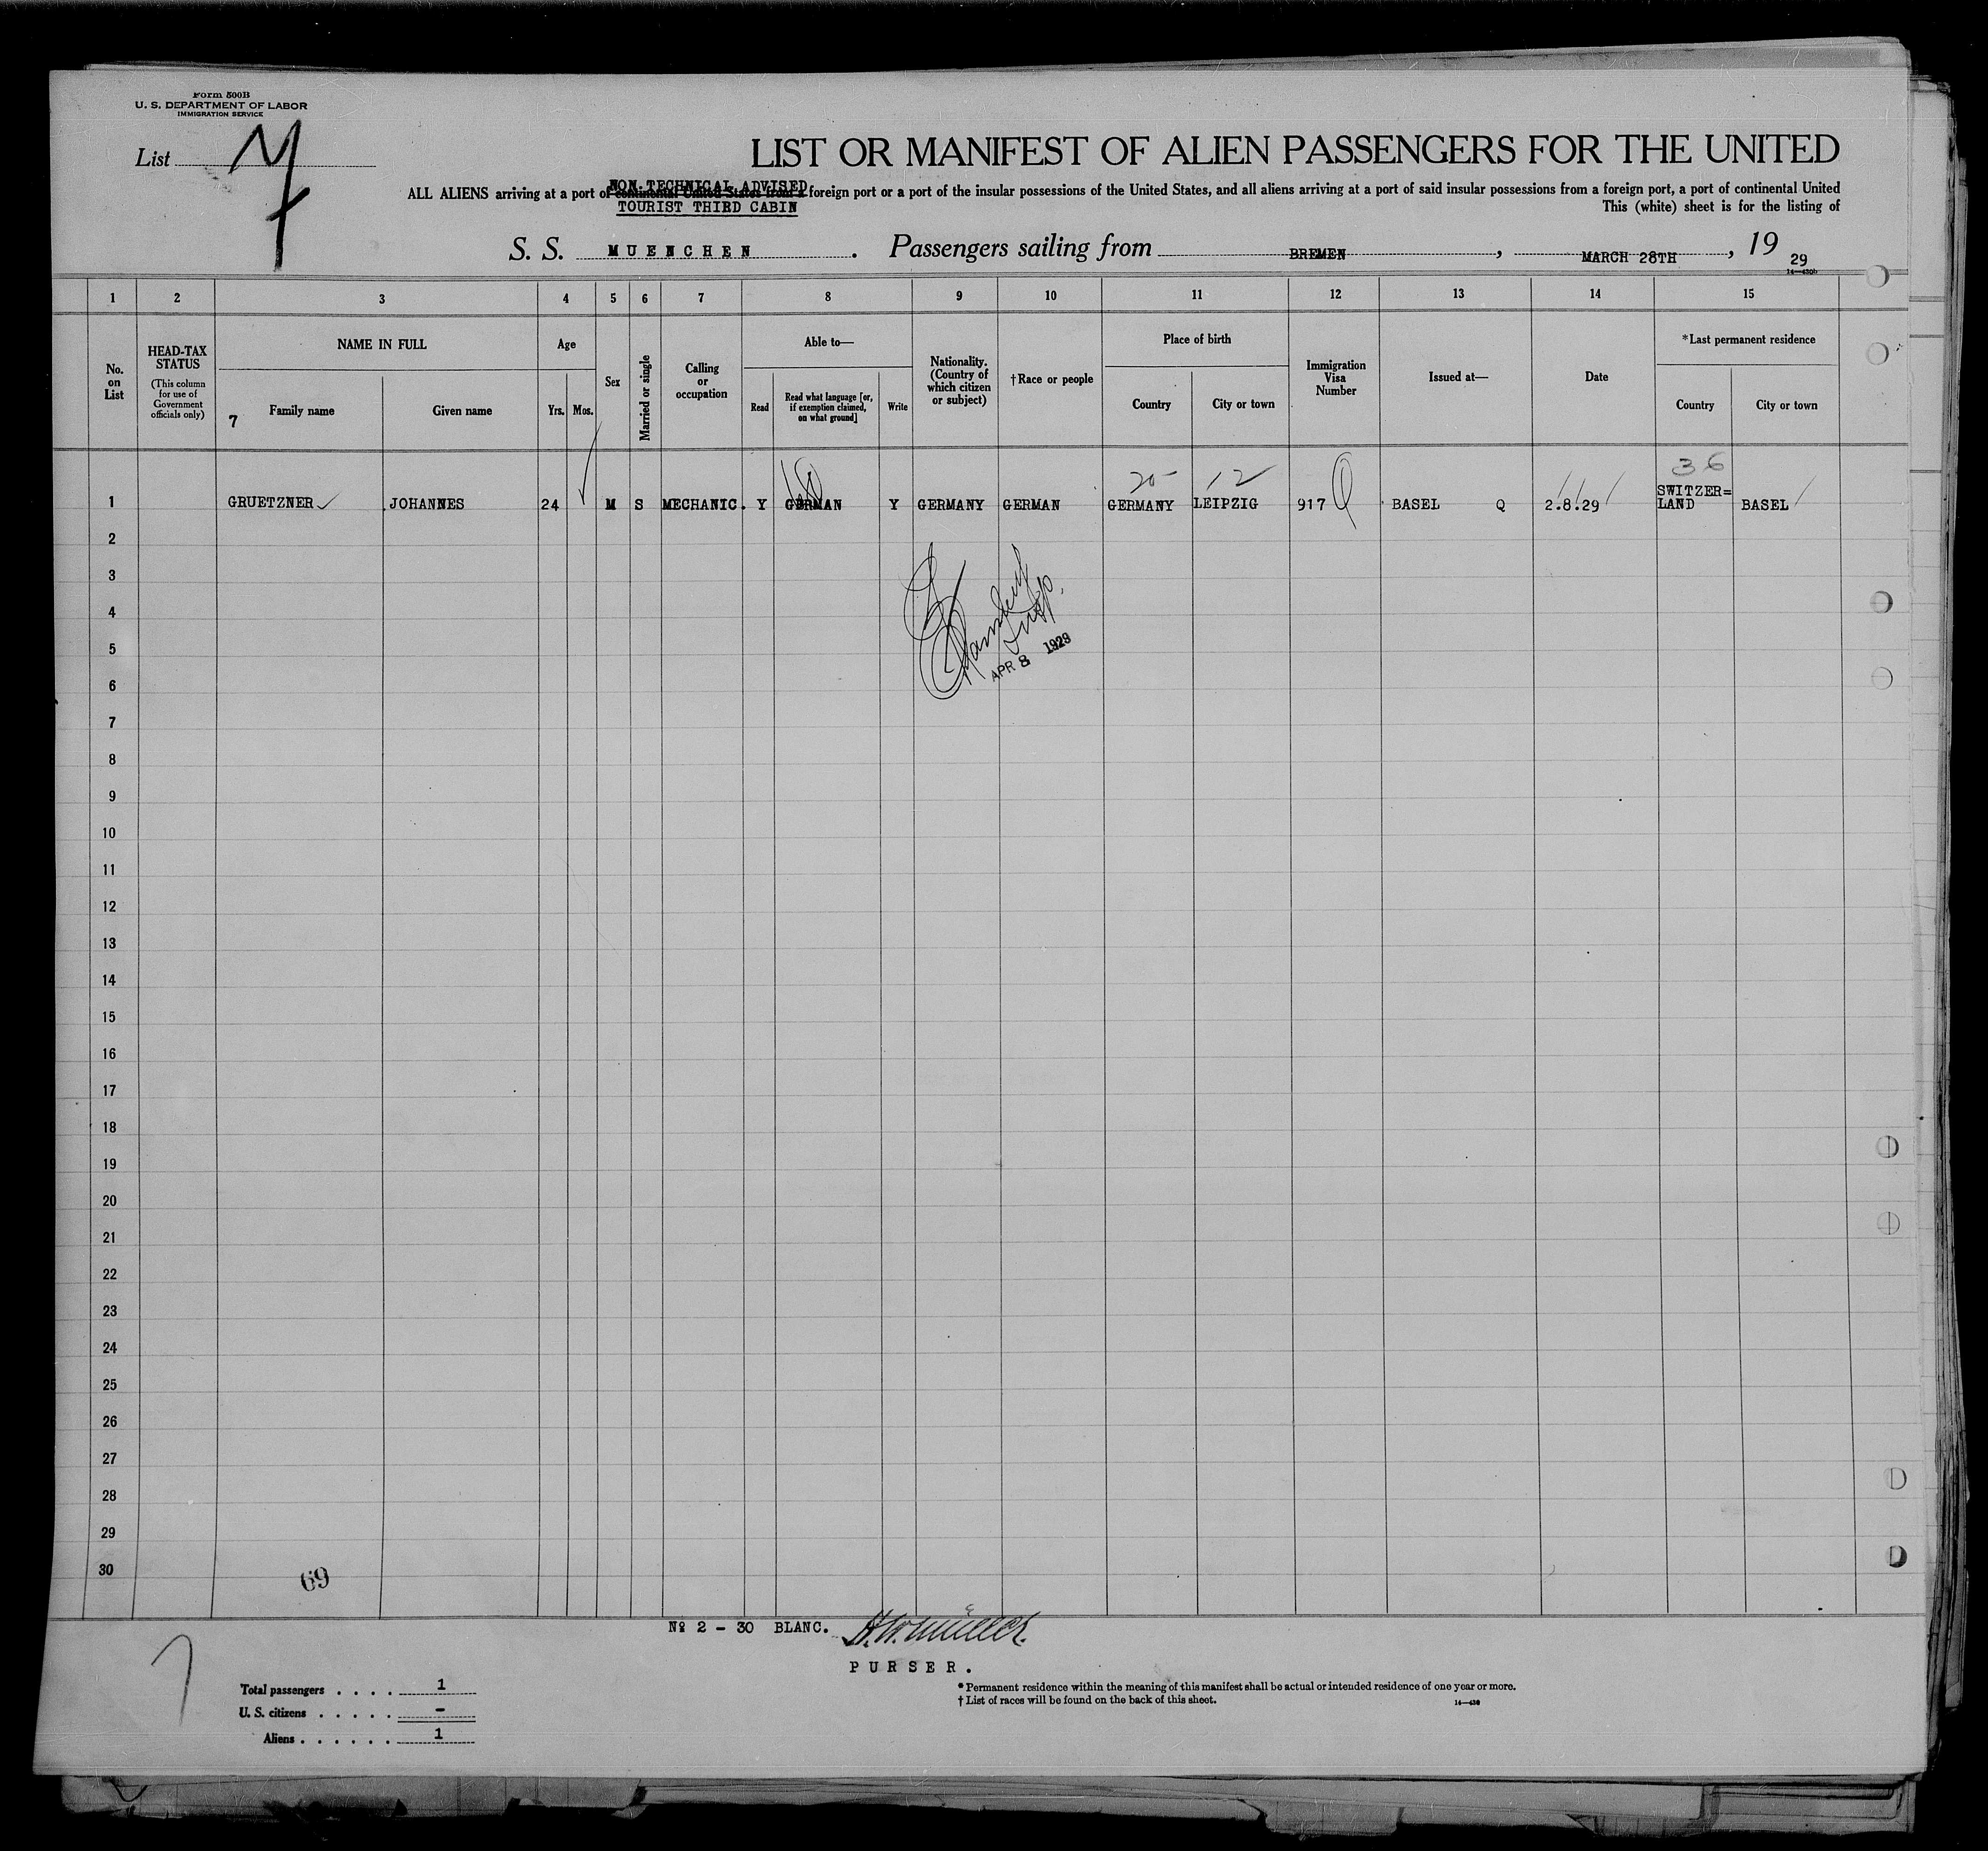 Form 500B
U. S. DEPARTMENT OF LABOR
IMMIGRATION SERVICE
List
LIST OR MANIFEST OF ALIEN PASSENGERS FOR THE UNITED
NON-TECHNICAL ADVISED
ALL ALIENS arriving at a port of continental United States from a foreign port or a port of the insular possessions of the United States, and all aliens arriving at a port of said insular possessions from a foreign port, a port of continental United
TOURIST THIRD CABIN
This (white) sheet is for the listing of
S. S. MUENCHEN . Passengers sailing from BREMEN , MARCH 28TH , 19 29
14—430b
1 2 3 4 5 6 7 8 9 10 11 12 13 14 15
No. on List
HEAD-TAX STATUS
(This column for use of Government officials only)
NAME IN FULL
7 Family name
Given name
Age
Yrs. Mos.
Sex
Married or single
Calling or occupation
Able to—
Read
Read what language [or, if exemption claimed, on what ground]
Write
Nationality. (Country of which citizen or subject)
†Race or people
Place of birth
Country
City or town
Immigration Visa Number
Issued at—
Date
*Last permanent residence
Country
City or town
20 12 36
1 GRUETZNER JOHANNES 24 M S MECHANIC. Y GERMAN Y GERMANY GERMAN GERMANY LEIPZIG 917 Q BASEL Q 2.8.29 SWITZER=LAND BASEL
2
3
4
Insp.
5
APR 8 1929
6
7
8
9
10
11
12
13
14
15
16
17
18
19
20
21
22
23
24
25
26
27
28
29
30
69
Nº 2 - 30 BLANC. H. W. Müller.
PURSER.
7
Total passengers . . . . 1
U. S. citizens . . . . . -
Aliens . . . . . . 1
* Permanent residence within the meaning of this manifest shall be actual or intended residence of one year or more.
† List of races will be found on the back of this sheet.
14—430